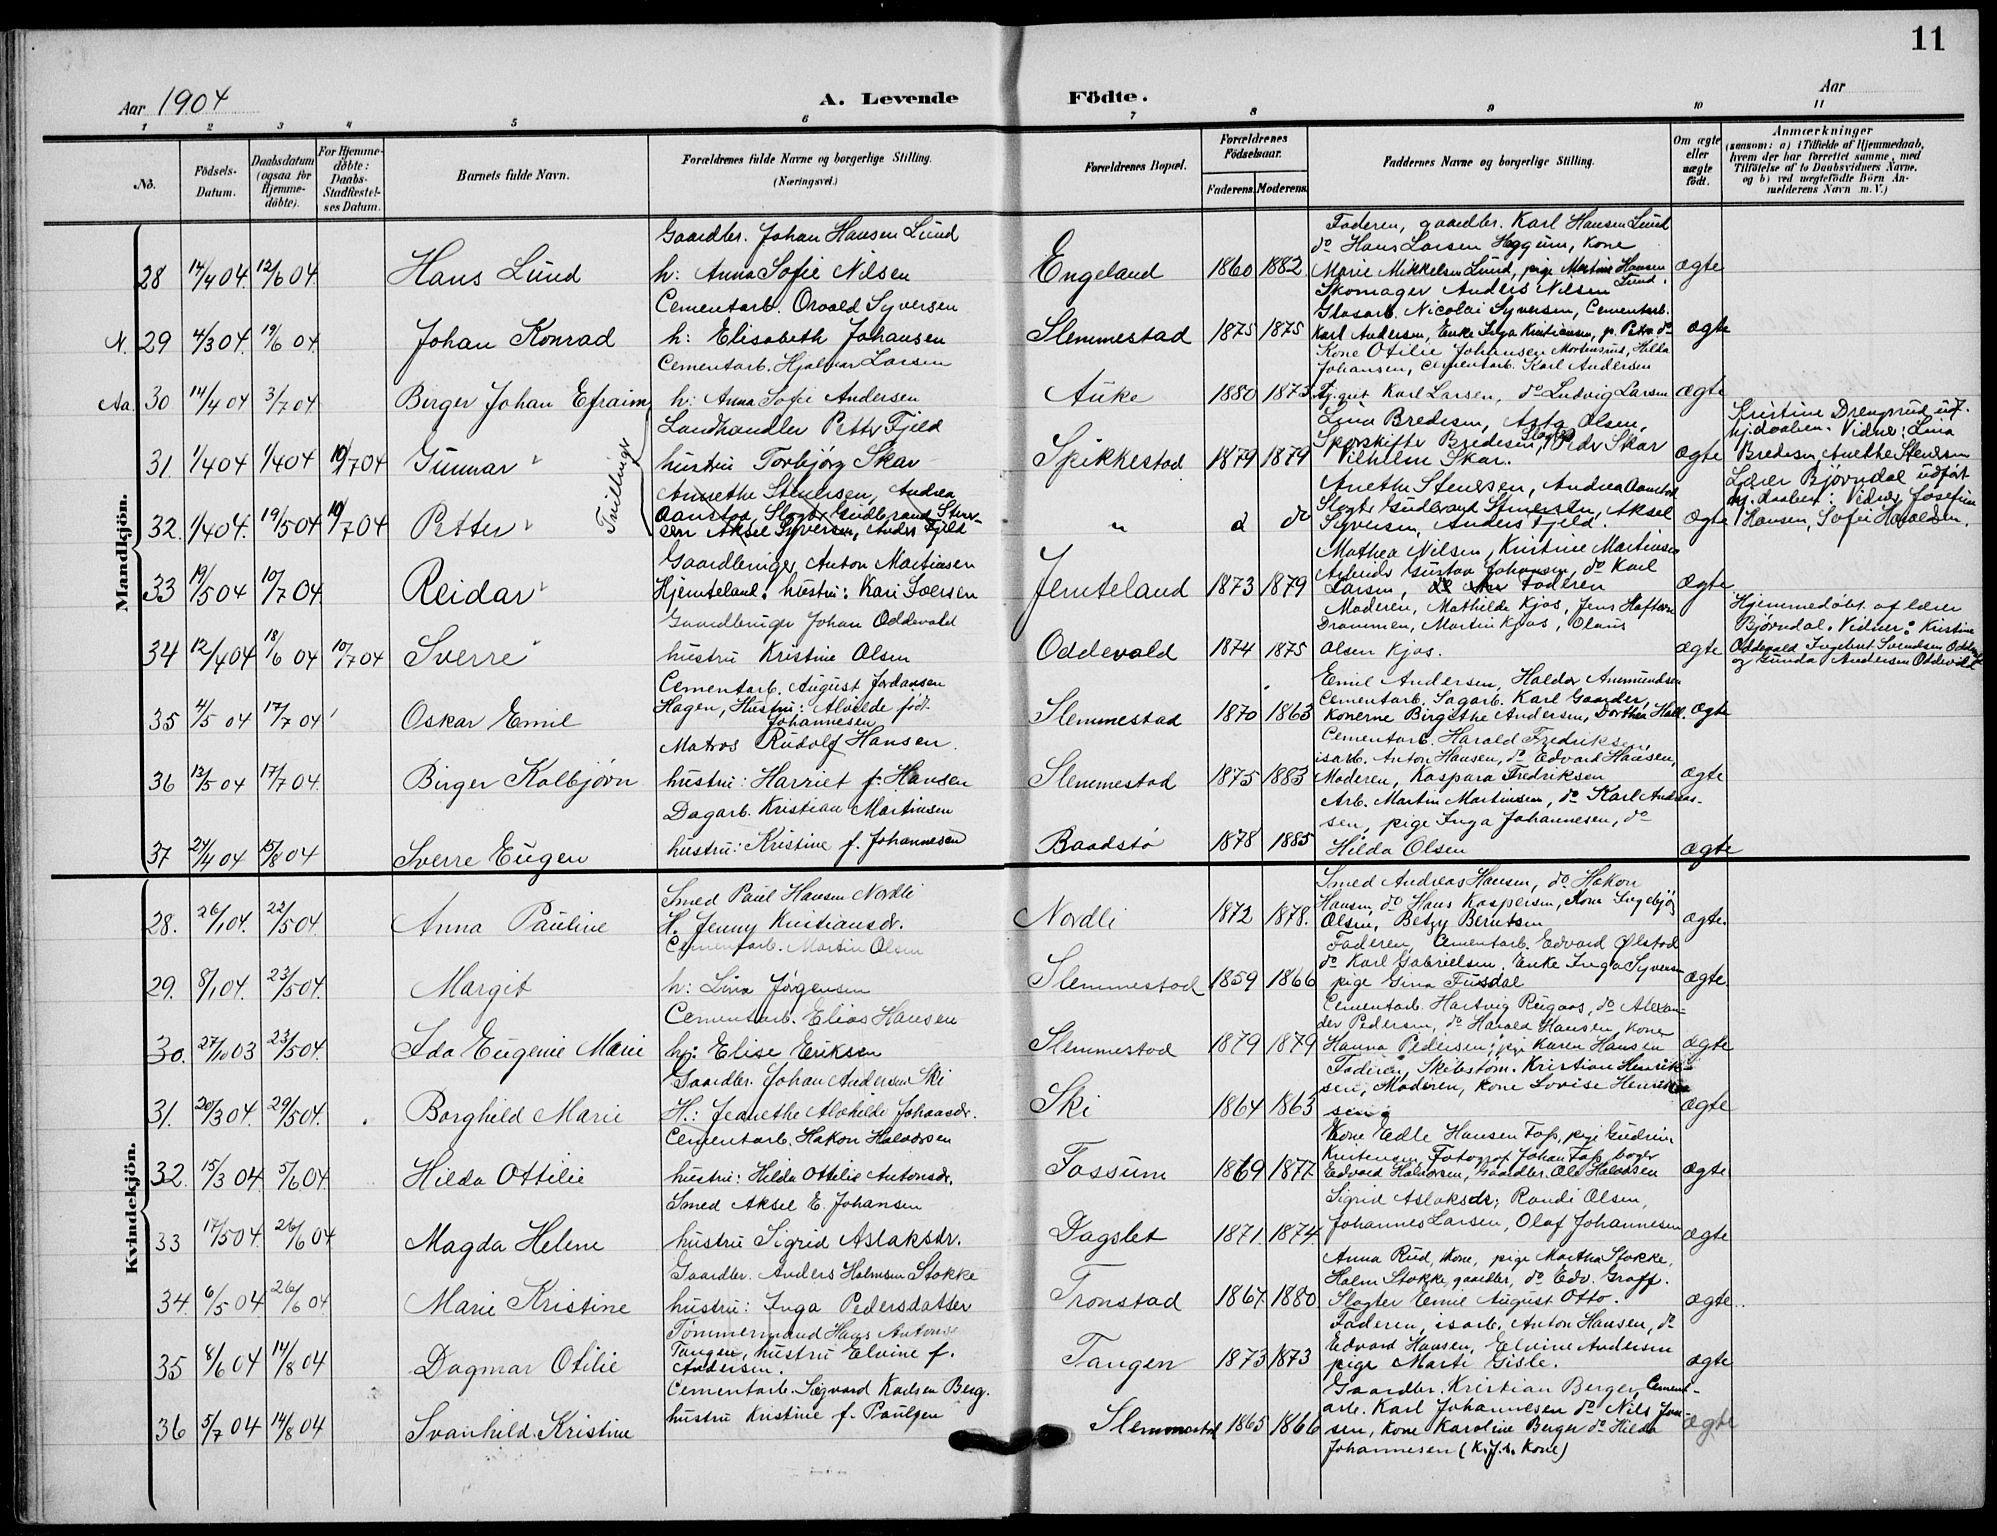 11
Aar 1904
A. Levende Födte.
Aar
1 2 3 4 5 6 7 8 9 10 11
No.
Födsels-Datum.
Daabsdatum (ogsaa for Hjemme-döbte).
For Hjemme-döbte: Daabs-Stadfæstel-ses Datum.
Barnets fulde Navn.
Forældrenes fulde Navne og borgerlige Stilling. (Næringsvei.)
Forældrenes Bopæl.
Forældrenes Födselsaar.
Faderens. Moderens.
Faddernes Navne og borgerlige Stilling.
Om ægte eller uægte født.
Anmærkninger
(saasom: a) i Tilfælde af Hjemmedaab,
hvem der har forrettet samme, med
Tilföielse af to Daabsvidners Navne,
og b) ved uægtefödte Börn An-
melderens Navn m. V.)
Mandkjön.
28 14/4 04 12/6 04 Hans Lund
Gaardbr. Johan Hansen Lund
h: Anna Sofie Nilsen
Engeland 1860 1882
Faderen, gaardbr. Karl Hansen Lund
do Hans Larsen Heggum, Kone
Marie Mikkelsen Lund, pige Martine Hansen Lund.
ægte
N. 29 4/3 04. 19/6 04. Johan Konrad
Cementarb. Orvald Syversen
h: Elisabeth Johansen
Slemmestad 1875 1875
Skomager Anders Nilsen
Glasarb. Nicolai Syversen, Cementarb.
Karl Andersen, Enke Inga Kristiansen, p. Petra do
ægte
Aa. 30 14/4 04 3/7 04 Birger Johan Efraim
Cementarb. Hjalmar Larsen
h: Anna Sofie Andersen
Auke 1880 1873
Kone Otilie Johansen Morteusrud, Hilda
Johansen, Cementarb. Karl Andersen
Tj.gut Karl Larsen, do Ludvig Larsen
ægte
Tvillinger
31. 1/4 04 1/4 04 10/7 04 Gunnar
Landhandler Petter Fjeld
hustru Torbjørg Skar
Spikkestad 1879 1879
Lina Bredesen, Asta Olsen,
Sporskifter Bredesen, Slagter Peder Skar
Vilhelm Skar.
ægte
Kristine Drengsrud udf.
hj.daaben. Vidner: Lina
Bredesen, Anethe Stenersen
32. 1/4 04. 19/5 04 10/7 04 Petter
Annethe Stenersen, Andrea
Aanstad, Slagter Gudbrand Stener-
sen Aksel Syversen, Anders Fjeld
" d do
Anethe Stenersen, Andrea Aanstad
Slagter Gudbrand Stenersen, Aksel
Syversen, Anders Fjeld.
ægte
Lærer Bjørndal udført
hj. daaben: Vidner Josefine
Hansen, Sofie Haraldsen.
33 19/5 04 10/7 04. Reidar
Gaardbruger Anton Martinsen
Hjemteland: hustru: Kari Iversen
Jemteland 1873 1879
Mathea Nilsen, Kristine Martinsen
Arbeider Gustav Johansen, do Karl
Larsen, Faderen
ægte
34 12/4 04 18/6 04 10/7 04 Sverre
Gaardbruger Johan Oddevald
hustru Kristine Olsen
Oddevald 1874 1875
Moderen, Mathilde Kjos, Jens Haftorn
Drammen, Martin Kjos, Olaus
Olsen Kjos.
ægte
Hjemmedøbt af lærer
Bjørndal. Vidner: Kristine
Oddevald Ingebret Svendsen
og Gunda Andersen Oddevald
35 4/5 04 17/7 04 Oskar Emil
Cementarb. August Jordansen
Hagen, Hustru: Alvilde født
Johannesen
Slemmestad 1870 1863
Emil Andersen, Haldor Ammundsen
Cementarb. Sagarb. Karl Gaarder,
Konerne Birgithe Andersen, Dorthea Hall.
ægte
36 13/5 04 17/7 04. Birger Kolbjørn
Matros Rudolf Hansen.
hustru: Harriet f. Hansen
Slemmestad 1875 1883
Cementarb. Harald Fredriksen,
isarb. Anton Hansen, do Edvard Hansen,
Moderen, Kaspara Fredriksen
ægte
37 24/4 04 15/8 04 Sverre Eugen
Dagarb. Kristian Martinsen
hustru: Kristine f. Johannesen
Baadstø 1878 1885
Arb. Martin Martinsen, do Karl Andreas-
sen, pige Inga Johannesen, do
Hilda Olsen
ægte
Kvindekjön.
28. 26/1 04. 22/5 04. Anna Pauline
Smed Paul Hansen Nordli
H. Jenny Kristiansdr.
Nordli 1872 1878.
Smed Andreas Hansen, do Hakon
Hansen, do Hans Kaspersen, Kone Ingebjør
Olsen, Betzy Berntsen
ægte.
29. 8/1 04. 23/5 04. Margit
Cementarb. Martin Olsen
h: Lina Jørgensen
Slemmestad 1859 1866
Faderen, Cementarb. Edvard Ølstad
do Karl Gabrielsen, Enke Inga Syversen
pige Gina Fusdal
ægte.
30. 27/10 03 23/5 04. Ida Eugenie Marie
Cementarb. Elias Hansen
h: Elise Eriksen
Slemmestad 1879 1879
Cementarb. Hartvig Rugaas, do Alexan-
der Pedersen, do Harald Hansen, Kone
Hanna Pedersen, pige Karen Hansen
ægte
31. 20/3 04. 29/5 04. Borghild Marie
Gaardbr. Johan Andersen Ski
H.: Jeanethe Alvhilde Johansdr.
Ski 1864 1863
Faderen, Skibstøm. Kristian Henrik-
sen, Moderen, Kone Lovise Henrik-
sen.
ægte
32. 15/3 04. 5/6 04. Hilda Ottilie
Cementarb. Hakon Halvorsen
hustru: Hilda Ottilie Antonsdr.
Fossum 1869 1877.
Kone Edle Hansen Foss, pige Gudrun
Kristensen, Fotograf Johan Foss, bager
Edvard Halvorsen, Gaardbr. Ole Halvorsen
ægte
33 17/5 04. 26/6 04 Magda Helene
Smed Aksel E. Johansen
hustru Sigrid Aslaksdr.
Dagslet 1871. 1874.
Sigrid Aslaksdr, Randi Olsen,
Johannes Larsen, Olaf Johannesen
ægte
34. 6/5 04 26/6 04 Marie Kristine
Gaardbr. Anders Halmsen Stokke
hustru: Inga Pedersdatter
Tronstad 1867. 1880
Anna Rud, Kone, pige Martha Stokke,
Halm Stokke, gaardbr, do Edv. Graff.
Slagter Emil August Otto.
ægte.
35 8/6 04 14/8 04 Dagmar Otilie
Tømmermand Hans Antonsen
Tangen, hustru Elvine f.
Andersen.
Tangen 1873 1873
Faderen, isarb. Anton Hansen, do
Edvard Hansen, Elvine Andersen
pige Marte Gisle.
ægte
36 5/7 04 14/8 04 Svanhild Kristine
Cementarb. Sigvard Karlsen Berg.
hustru Kristine f. Paulsen
Slemmestad 1865 1866
Gaardbr. Kristian Berger, Cement-
arb. Karl Johannesen do Nils Jon-
sen, Kone Karoline Berger do Hilda
Johannesen (K.J.s. Kone)
ægte